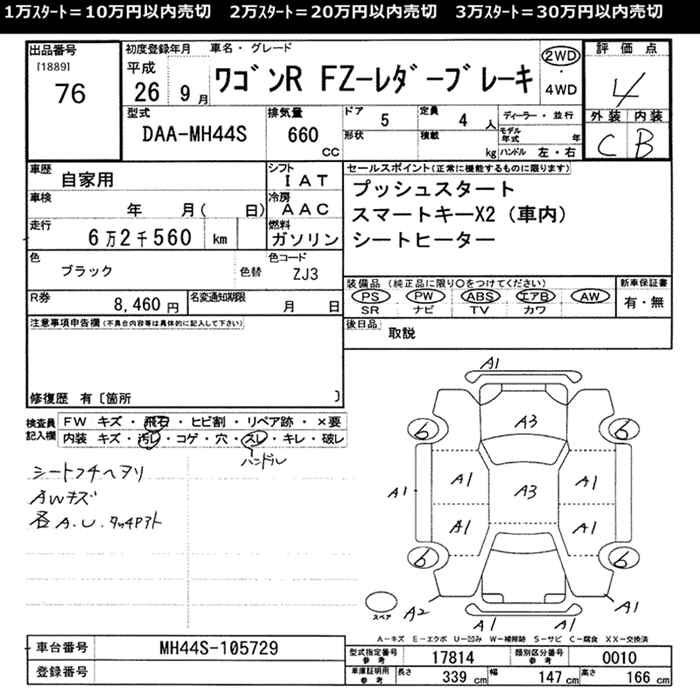 1万ｽﾀｰﾄ＝10万円以内売切　2万ｽﾀｰﾄ＝20万円以内売切　3万ｽﾀｰﾄ＝30万円以内売切
出品番号
[1889]
76
初度登録年月
平成
26 9月
車名・グレード
ワゴンR FZ-レダーブレーキ
2WD
・
4WD
評価点
4
外装 内装
C B
型式
DAA-MH44S
排気量
660
CC
ドア
5
定員
4人
形状
積載
kg
ディーラー・並行
モデル年式 年
ハンドル 左・右
車歴
自家用
シフト
IAT
車検
年 月( 日)
冷房
AAC
走行
6万2千560 km
燃料
ガソリン
色
ブラック
色替
色コード
ZJ3
R券
8,460 円
名変通知期限
月 日
セールスポイント(正常に機能するものに限ります)
プッシュスタート
スマートキーX2（車内）
シートヒーター
装備品（純正品に限り○をつけてください）
PS PW ABS エアB AW
SR ナビ TV カワ
新車保証書
有・無
後日品
取説
注意事項申告欄(不具合内容等は具体的に記入して下さい)
修復歴 有〔箇所 〕
検査員
記入欄
FW キズ・飛石・ヒビ割・リペア跡・×要
内装 キズ・汚レ・コゲ・穴・スレ・キレ・破レ
ハンドル
シートフチヘタリ
AWキズ
各A.U.タッチPアト
A1
A3
6 6
A1 A1 A3 A1 A1
A1 A1
6 6
A2 A1 A1 A1
スペア
A－キズ E－エクボ U－凹み W－補修跡 S－サビ C－腐食 XX－交換済
車台番号
MH44S-105729
登録番号
型式指定番号
参考
17814
類別区分番号
参考
0010
車庫証明用
参考
長さ
339 cm
幅
147 cm
高さ
166 cm